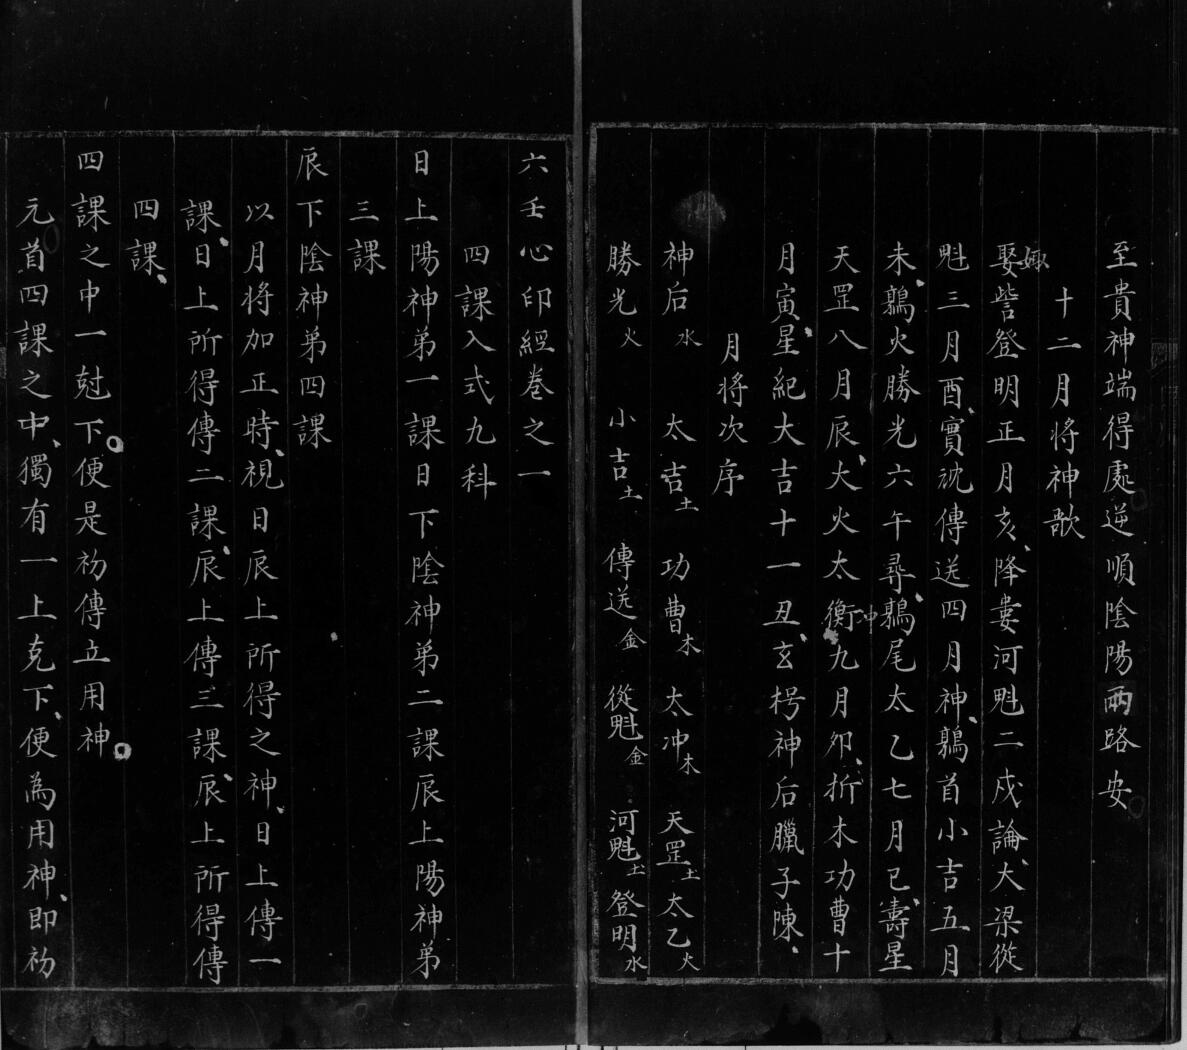 至貴神端得處逆順陰陽兩路安
十二月將神歌
娶訾登明正月亥、降婁河魁二戍論、大梁從
娵
魁三月酉、實沈傳送四月神、鶉首小吉五月
未、鶉火勝光六午尋、鶉尾太乙七月巳、壽星
天罡八月辰、大火太衡九月夘、折木功曹十
冲
月寅、星紀大吉十一丑、玄枵神后臘子陳、
月將次序
神后水 太吉土 功曹木 太冲木 天罡土 太乙火
勝光火 小吉土 傳送金 從魁金 河魁土 登明水
六壬心印經卷之一
四課入式九科
日上陽神弟一課日下陰神弟二課辰上陽神弟
三課
辰下陰神弟四課
以月將加正時、視日辰上所得之神、日上傳一
課、日上所得傳二課、辰上傳三課、辰上所得傳
四課、
四課之中一尅下。便是初傳立用神。
元首四課之中、獨有一上克下、便為用神、即初